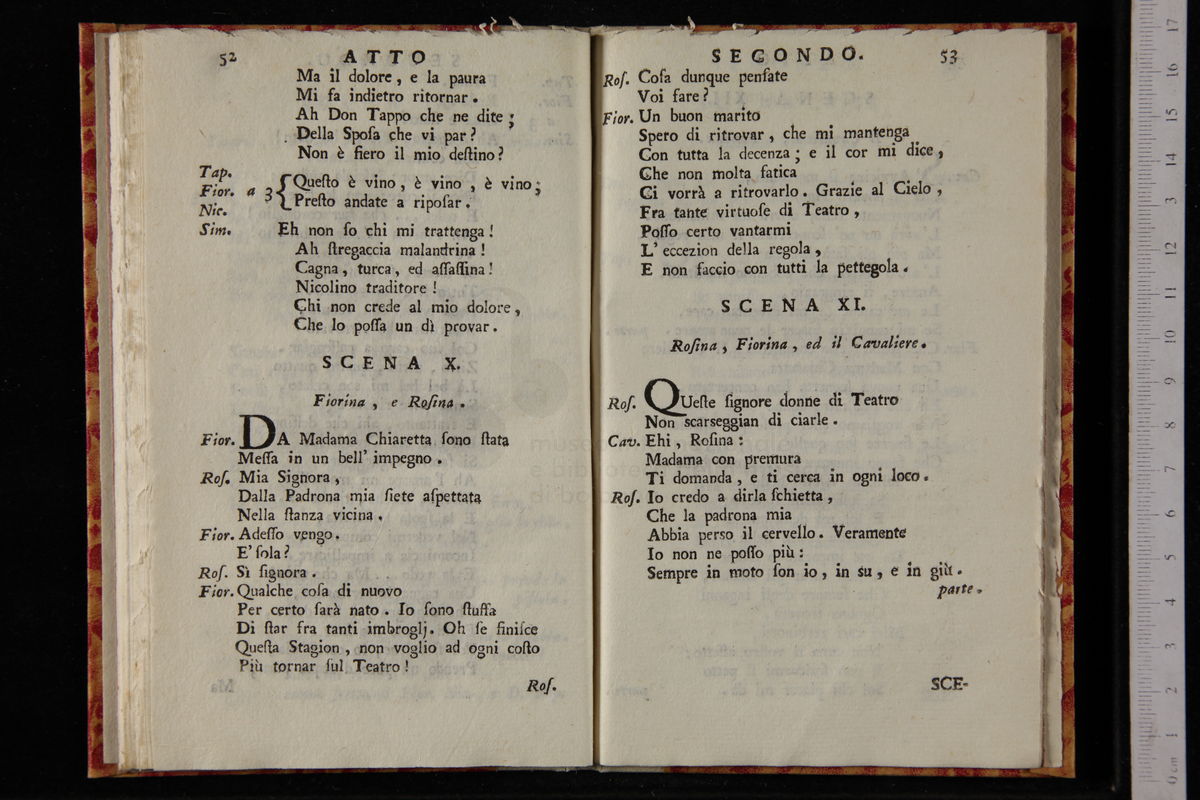 52 ATTO
Ma il dolore, e la paura
Mi fa indietro ritornar.
Ah Don Tappo che ne dite;
Della Spoſa che vi par?
Non è fiero il mio deſtino?
Tap.
Fior. a 3 { Queſto è vino, è vino, è vino;
Nic. Preſto andate a ripoſar.
Sim. Eh non ſo chi mi trattenga!
Ah ſtregaccia malandrina!
Cagna, turca, ed aſſaſſina!
Nicolino traditore!
Chi non crede al mio dolore,
Che lo poſſa un dì provar.
SCENA X.
Fiorina, e Roſina.
Fior. DA Madama Chiaretta ſono ſtata
Meſſa in un bell' impegno.
Roſ. Mia Signora,
Dalla Padrona mia ſiete aſpettata
Nella ſtanza vicina.
Fior. Adeſſo vengo.
E' ſola?
Roſ. Sì ſignora.
Fior. Qualche coſa di nuovo
Per certo ſarà nato. Io ſono ſtuffa
Di ſtar fra tanti imbroglj. Oh ſe finiſce
Queſta Stagion, non voglio ad ogni coſto
Più tornar ſul Teatro!
Roſ.
SECONDO. 53
Roſ. Coſa dunque penſate
Voi fare?
Fior. Un buon marito
Spero di ritrovar, che mi mantenga
Con tutta la decenza; e il cor mi dice,
Che non molta fatica
Ci vorrà a ritrovarlo. Grazie al Cielo,
Fra tante virtuoſe di Teatro,
Poſſo certo vantarmi
L' eccezion della regola,
E non faccio con tutti la pettegola.
SCENA XI.
Roſina, Fiorina, ed il Cavaliere.
Roſ. QUeſte ſignore donne di Teatro
Non scarseggian di ciarle.
Cav. Ehi, Roſina:
Madama con premura
Ti domanda, e ti cerca in ogni loco.
Roſ. Io credo a dirla ſchietta,
Che la padrona mia
Abbia perso il cervello. Veramente
Io non ne poſſo più:
Sempre in moto ſon io, in su, e in giù.
parte.
SCE-